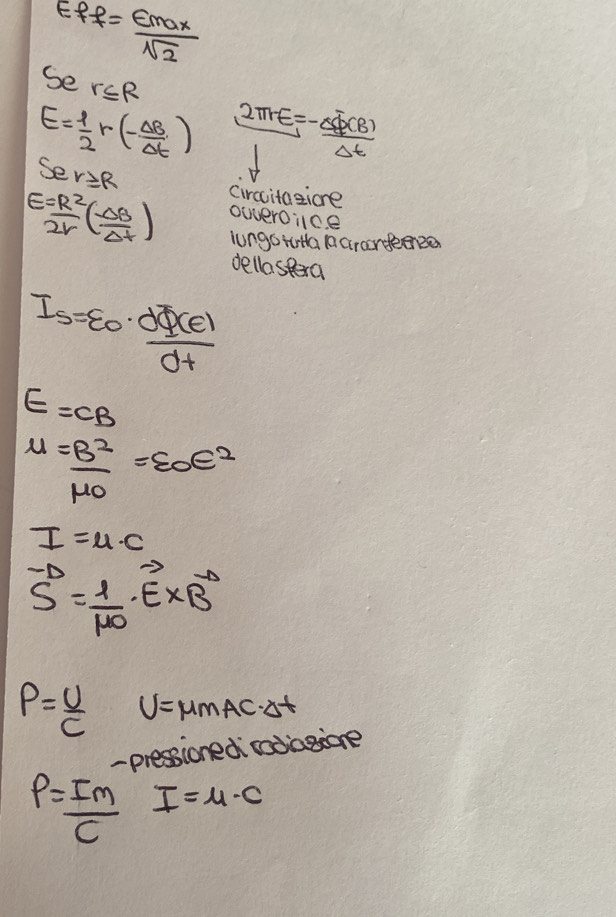 Eff = Emax/√2
Se r≤R
E = 1/2 r (-ΔB/Δt)
2πrE = -ΔΦ(B)/Δt
Se r≥R
E = R²/2r (-ΔB/Δt)
circuitazione
ovvero il c.e
lungo tutta la circonferenza
della sfera
Is = ε0 · dΦ(E)/dt
E = cB
u = B²/μ0 = ε0E²
I = u·c
S⃗ = 1/μ0 · E⃗ × B⃗
P = U/C U = μmAC·Δt
- pressione di radiazione
P = Im/C I = u·c